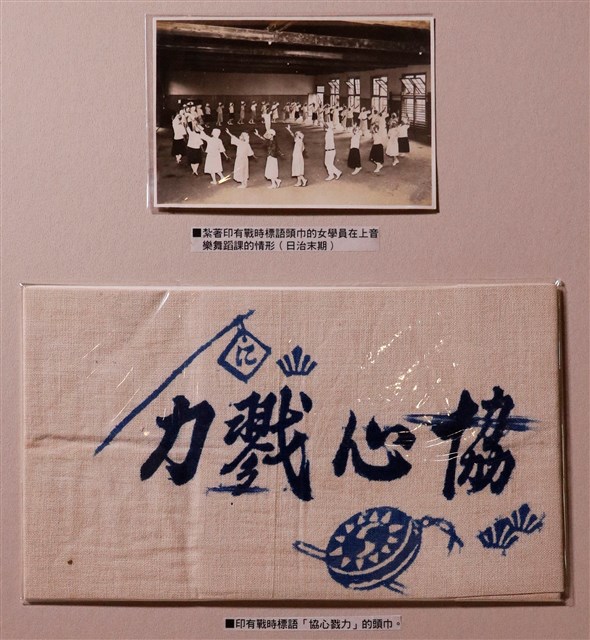 ■紮著印有戰時標語頭巾的女學員在上音
樂舞蹈課的情形（日治末期）
に
協心戮力
■印有戰時標語「協心戮力」的頭巾。